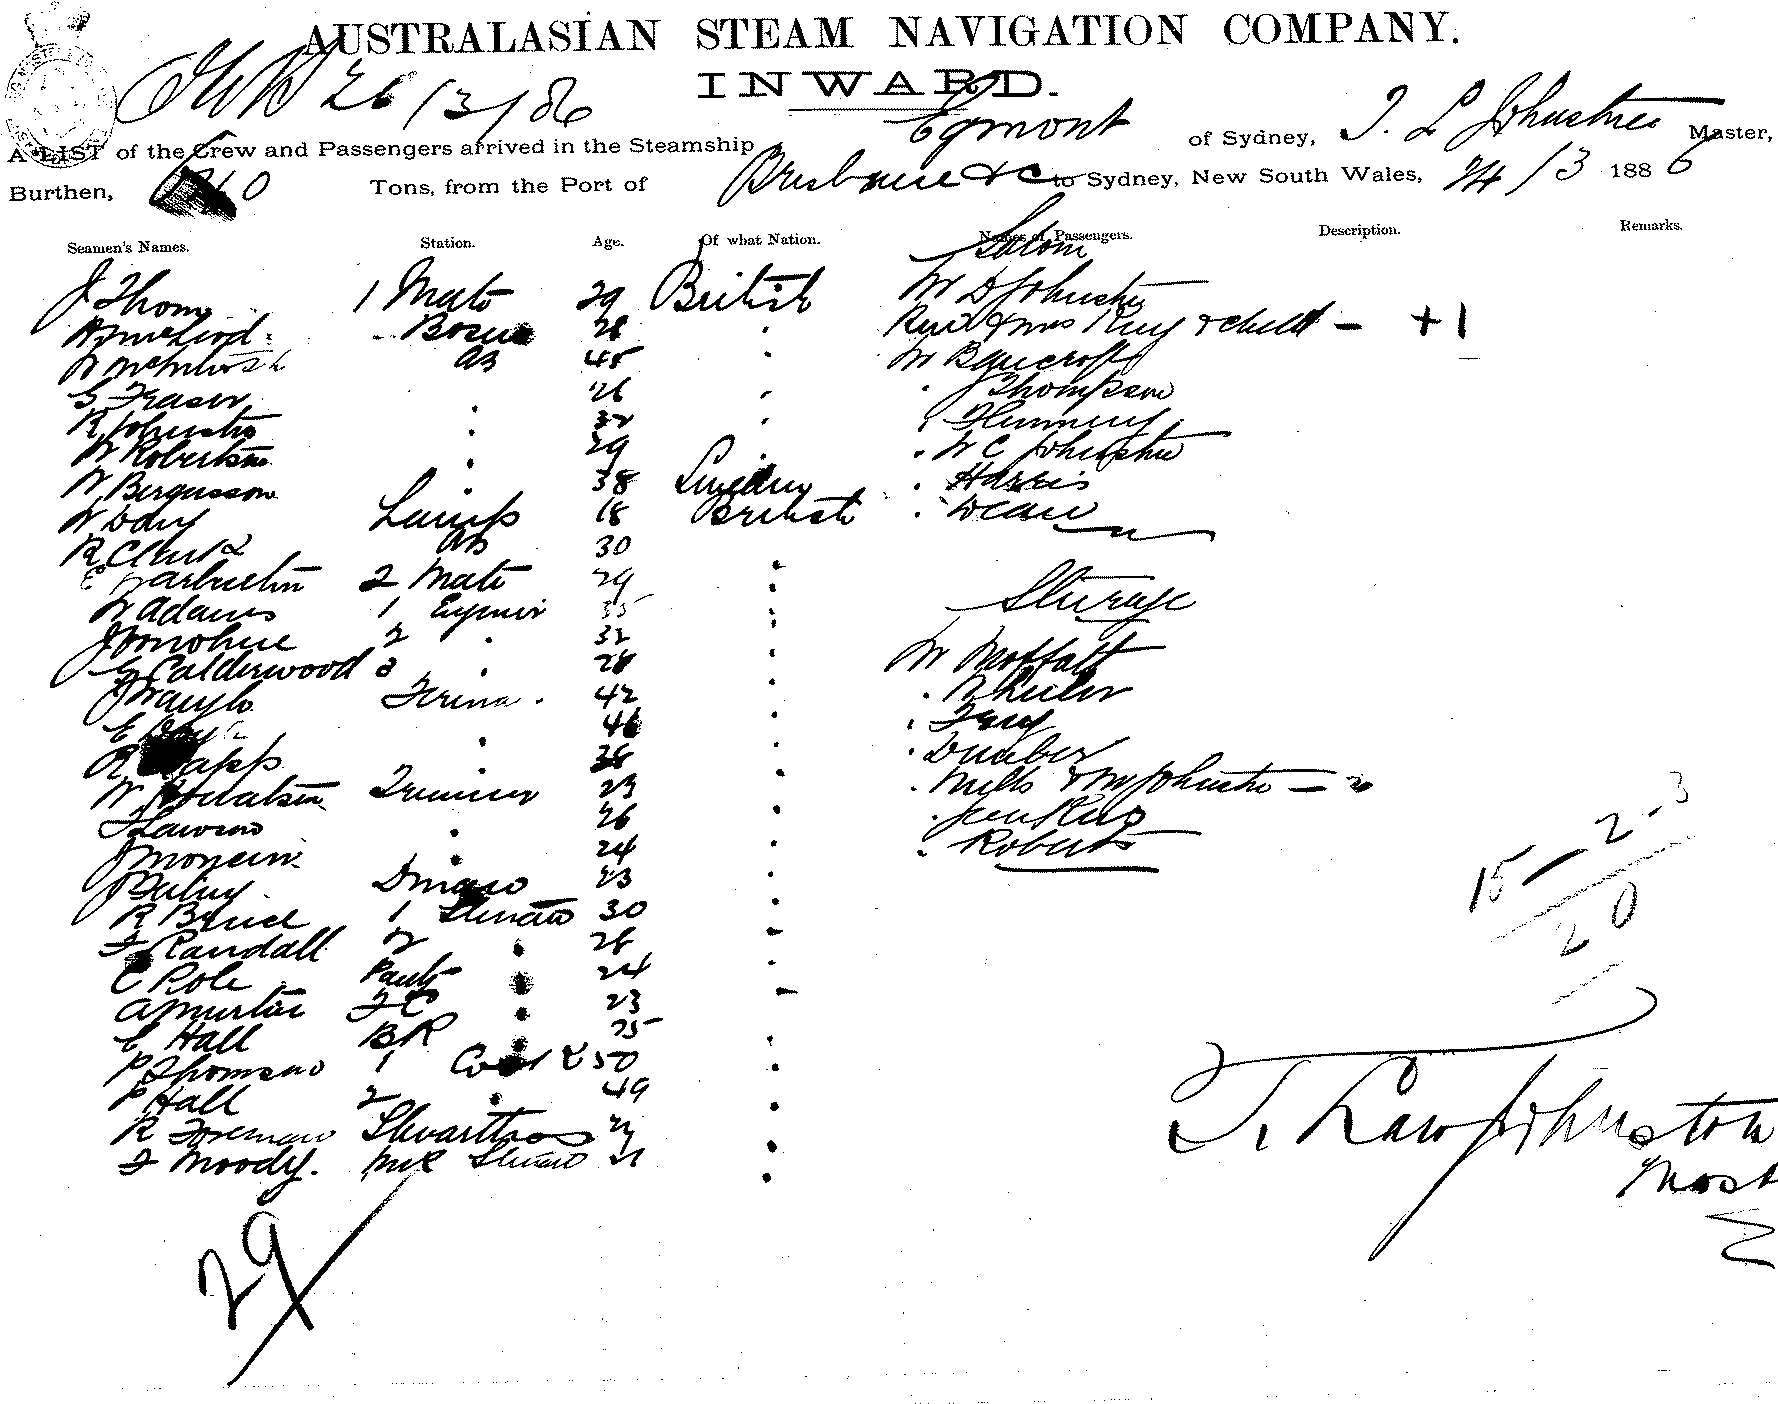 AUSTRALASIAN STEAM NAVIGATION COMPANY.
INWARD.
26/3/86
A LIST of the Crew and Passengers arrived in the Steamship Egmont of Sydney, T. L Johnston Master,
Burthen, Tons, from the Port of Brisbane &c to Sydney, New South Wales, 24/3 1886
Seamen's Names. Station. Age. Of what Nation. Names of Passengers. Description. Remarks.
Saloon
J Thom 1 Mate 29 British Mr D Johnston
A McLeod Bosun 28 Rev & Mrs King & child — +1
W McIntosh AB 45 Mr Bancroft
G Fraser 26 J Thompson
R Johnston 32 Flannery
W Robertson 29 W C Johnston
N Bergusson 38 Sweden Harris
W Davy Lamps 18 British Dean
R Clark AB 30
E Warburton 2 Mate 29
Steerage
W Adams 1 Engineer 35
J Donohue 2 32
G Calderwood 3 28 Mr Moffatt
J Naylo Firema 42 Wheeler
E 46
R 38 Dunbar
W Donaldson Trimmer 23 Mills & Mr Johnston — 2
F Lawson 26 Jenkins
J 24 Roberts
J Bailey Dman 23
R Bruce 1 Steward 30
F Randall 2 26
C Role Pantry 24
A Murtin FC 23
E Hall BR 25
P Thomson 1 Cook 50
P Hall 2 49
R Foreman Stewartress
F Moody. Steward 21
29
15 — 2 - 3
20
T. Law Johnston
Mast